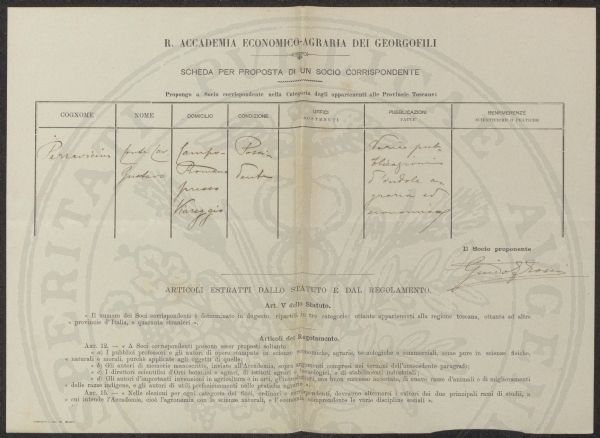 R. ACCADEMIA ECONOMICO-AGRARIA DEI GEORGOFILI
SCHEDA PER PROPOSTA DI UN SOCIO CORRISPONDENTE
Propongo a Socio corrispondente nella Categoria degli appartenenti alle Provincie Toscane:
COGNOME
NOME
DOMICILIO
CONDIZIONE
UFFICI
SOSTENUTI
PUBBLICAZIONI
FATTE
BENEMERENZE
SCIENTIFICHE O PRATICHE
Conte Cav
Gustavo
Campo-
Romano
presso
Viareggio
Possi-
dente
Varie pub-
blicazioni
d'indole a-
graria ed
economica
Il Socio proponente
Guido
ARTICOLI ESTRATTI DALLO STATUTO E DAL REGOLAMENTO.
Art. V dello Statuto.
« Il numero dei Soci corrispondenti è determinato in dugento, ripartiti in tre categorie: ottanta appartenenti alla regione toscana, ottanta ad altre
« provincie d'Italia, e quaranta stranieri ».
Articoli del Regolamento.
ART. 12. — « A Soci corrispondenti possono esser proposti soltanto:
« a) I pubblici professori e gli autori di opere stampate su scienze economiche, agrarie, tecnologiche o commerciali, come pure in scienze fisiche,
« naturali o morali, purchè applicate agli oggetti di quelle;
« b) Gli autori di memorie manoscritte, inviate all'Accademia, sopra argomenti compresi nei termini dell'antecedente paragrafo;
« c) I direttori scientifici d'Orti botanici e agrari, di istituti agrari e tecnologici, e di stabilimenti industriali;
« d) Gli autori d'importanti invenzioni in agricoltura o in arti, gli introduttori, con buon successo accertato, di nuove razze d'animali o di miglioramenti
« delle razze indigene, e gli autori di utili perfezionamenti nella pratica agraria ».
ART. 15. — « Nelle elezioni per ogni categoria dei Soci, ordinari e corrispondenti, dovranno alternarsi i cultori dei due principali rami di studii, a
« cui intende l'Accademia, cioè l'agronomia con le scienze naturali, e l'economia comprendente le varie discipline sociali ».